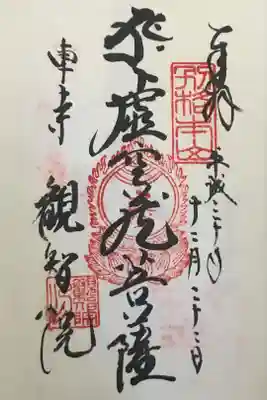 奉拝
別格本山
平成二十年
十二月二十二日
虚空蔵菩薩
東寺
観智院